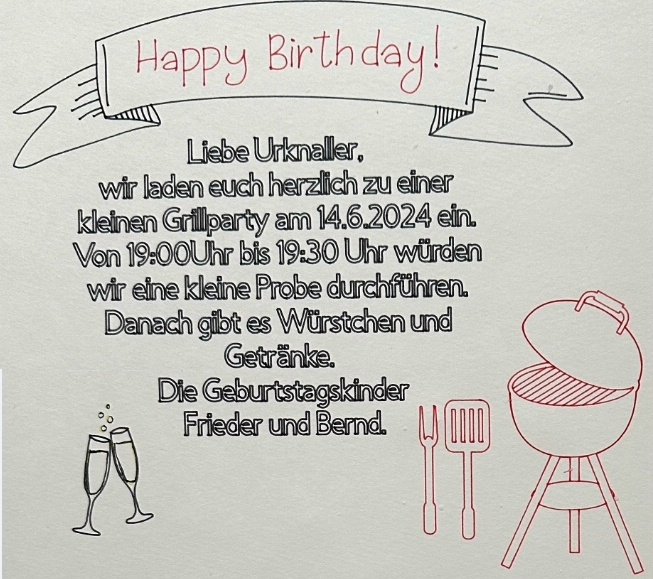 Happy Birthday!
Liebe Urknaller,
wir laden euch herzlich zu einer
kleinen Grillparty am 14.6.2024 ein.
Von 19:00Uhr bis 19:30 Uhr würden
wir eine kleine Probe durchführen.
Danach gibt es Würstchen und
Getränke.
Die Geburtstagskinder
Frieder und Bernd.